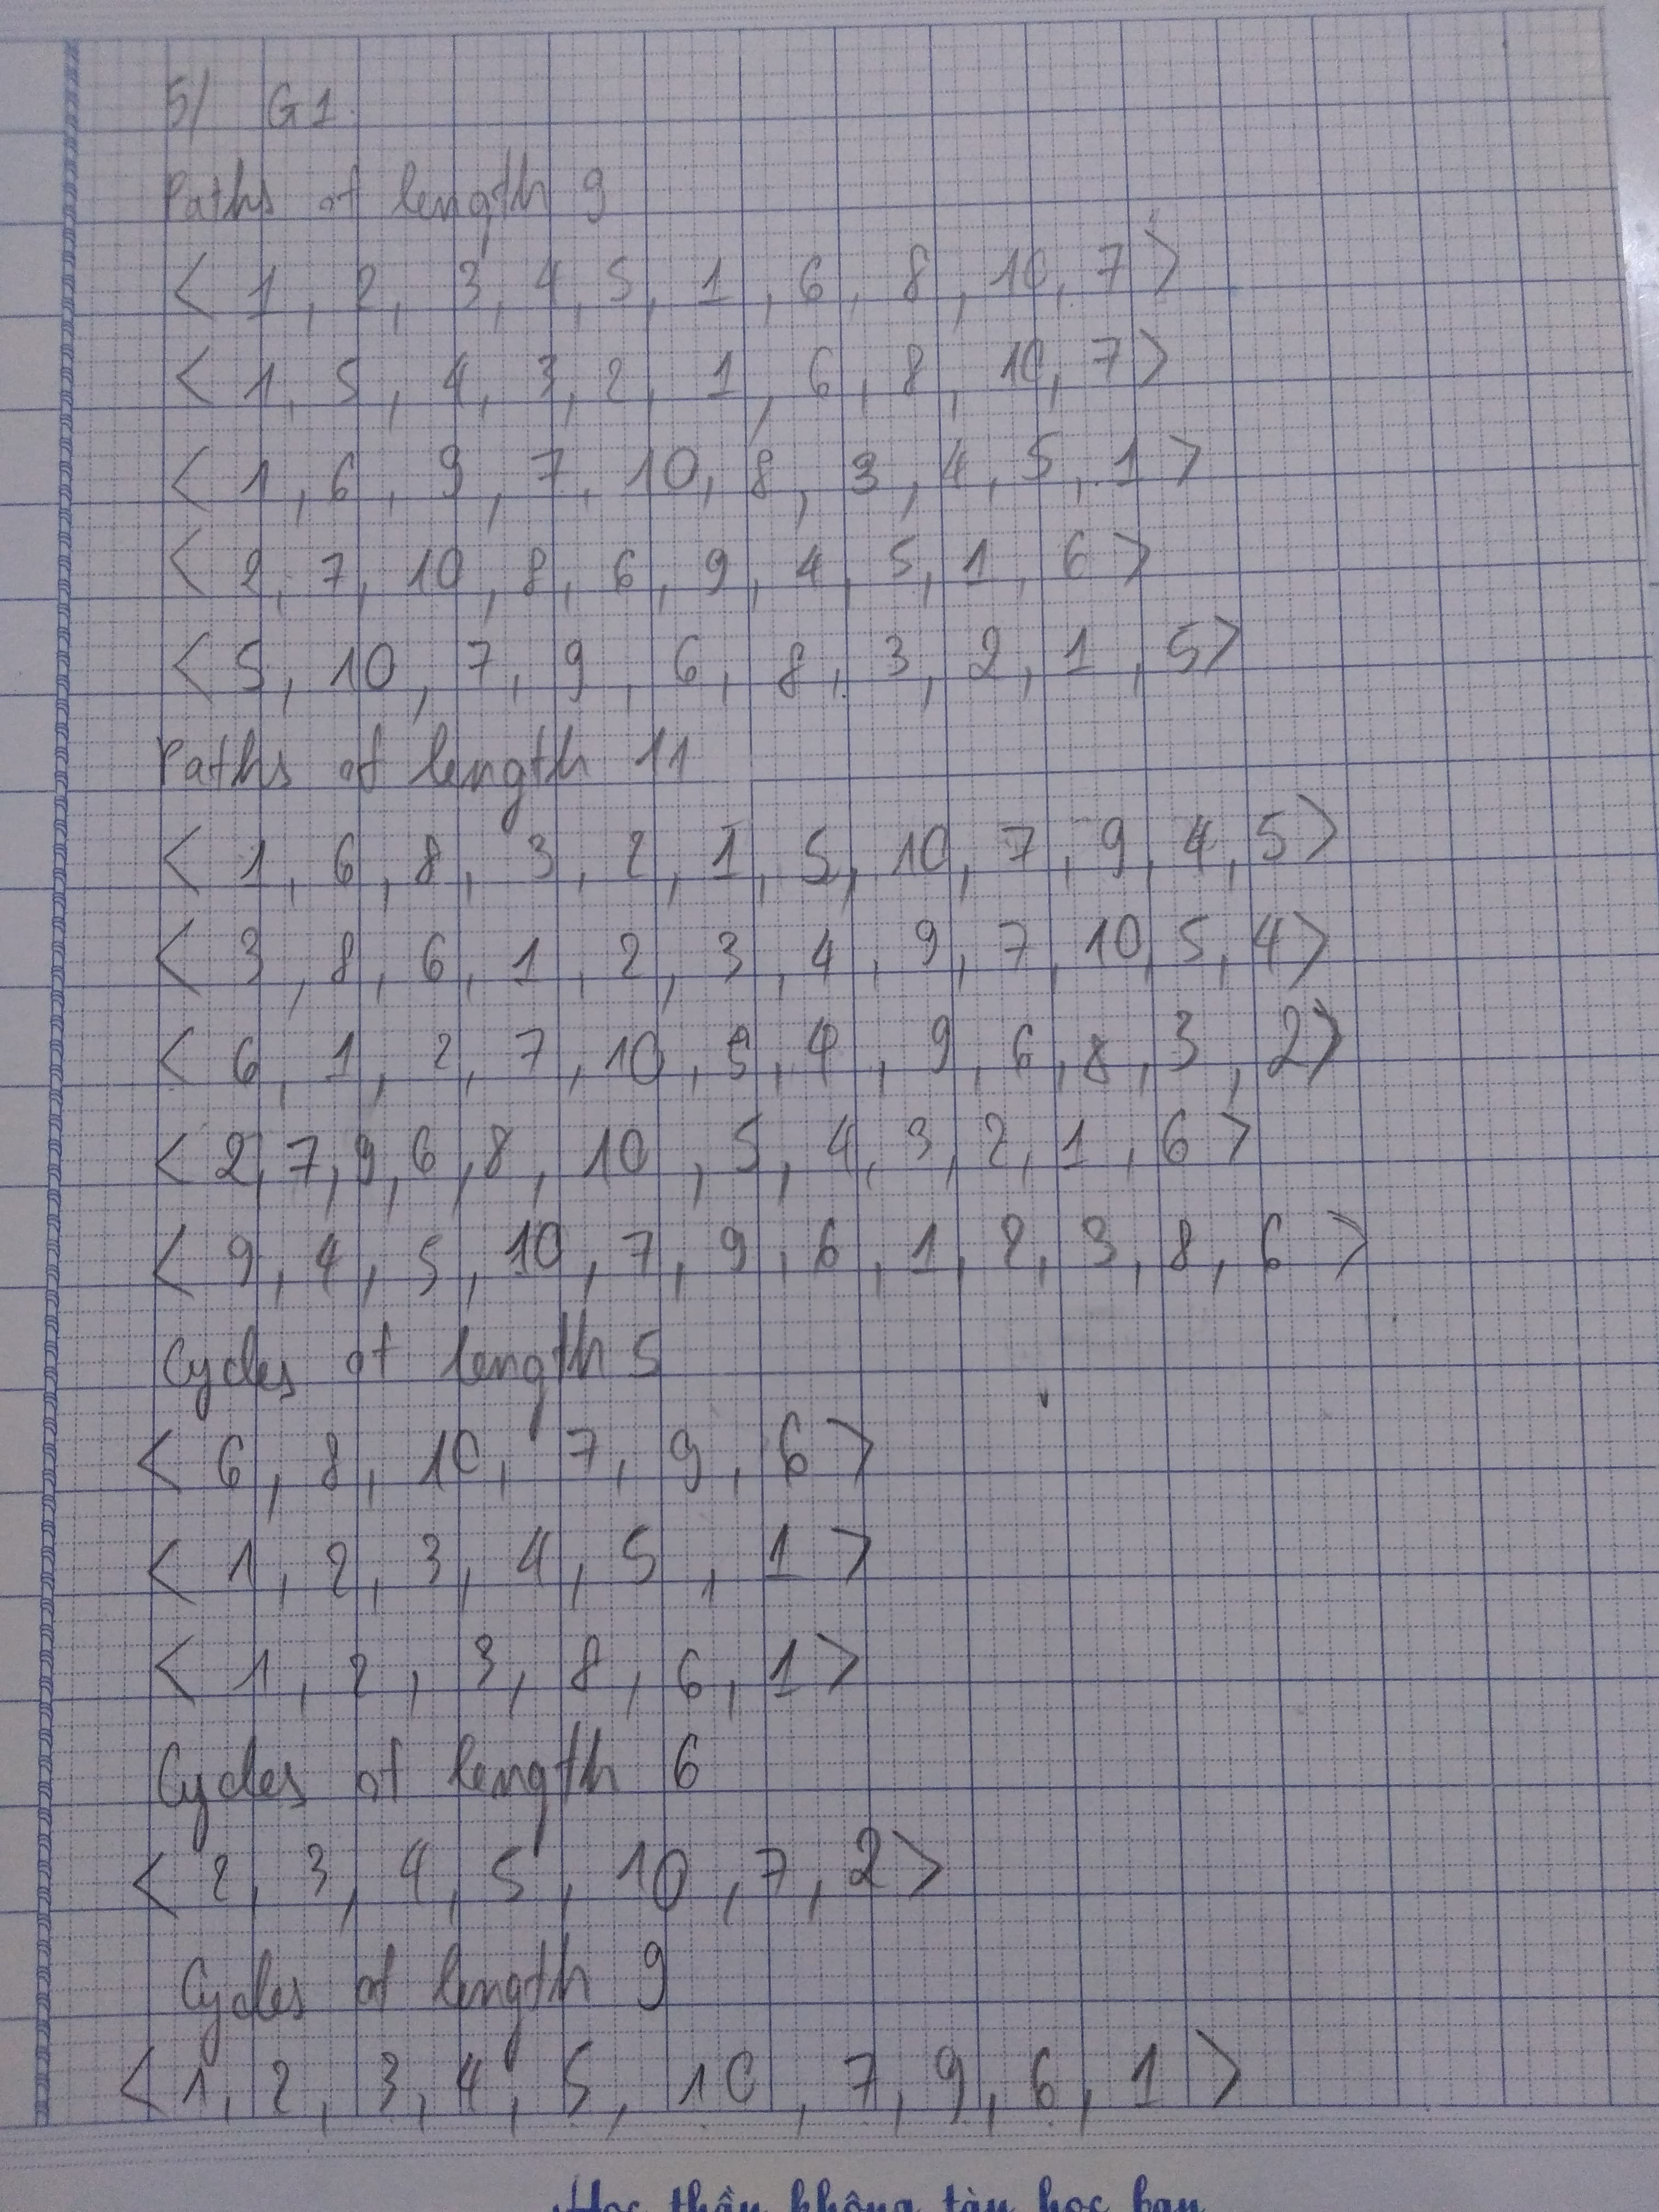 5/ G1.
Paths of length 9
< 1, 2, 3, 4, 5, 1, 6, 8, 10, 7 >
< 1, 5, 4, 3, 2, 1, 6, 8, 10, 7 >
< 1, 6, 9, 7, 10, 8, 3, 4, 5, 1 >
< 2, 7, 10, 8, 6, 9, 4, 5, 1, 6 >
< 5, 10, 7, 9, 6, 8, 3, 2, 1, 5 >
Paths of length 11
< 1, 6, 8, 3, 2, 1, 5, 10, 7, 9, 4, 5 >
< 3, 8, 6, 1, 2, 3, 4, 9, 7, 10, 5, 4 >
< 6, 1, 2, 7, 10, 5, 4, 9, 6, 8, 3, 2 >
< 2, 7, 9, 6, 8, 10, 5, 4, 3, 2, 1, 6 >
< 9, 4, 5, 10, 7, 9, 6, 1, 2, 3, 8, 6 >
Cycles of length 5
< 6, 8, 10, 7, 9, 6 >
< 1, 2, 3, 4, 5, 1 >
< 1, 2, 3, 8, 6, 1 >
Cycles of length 6
< 2, 3, 4, 5, 10, 7, 2 >
Cycles of length 9
< 1, 2, 3, 4, 5, 10, 7, 9, 6, 1 >
Học thầy không tày học bạn